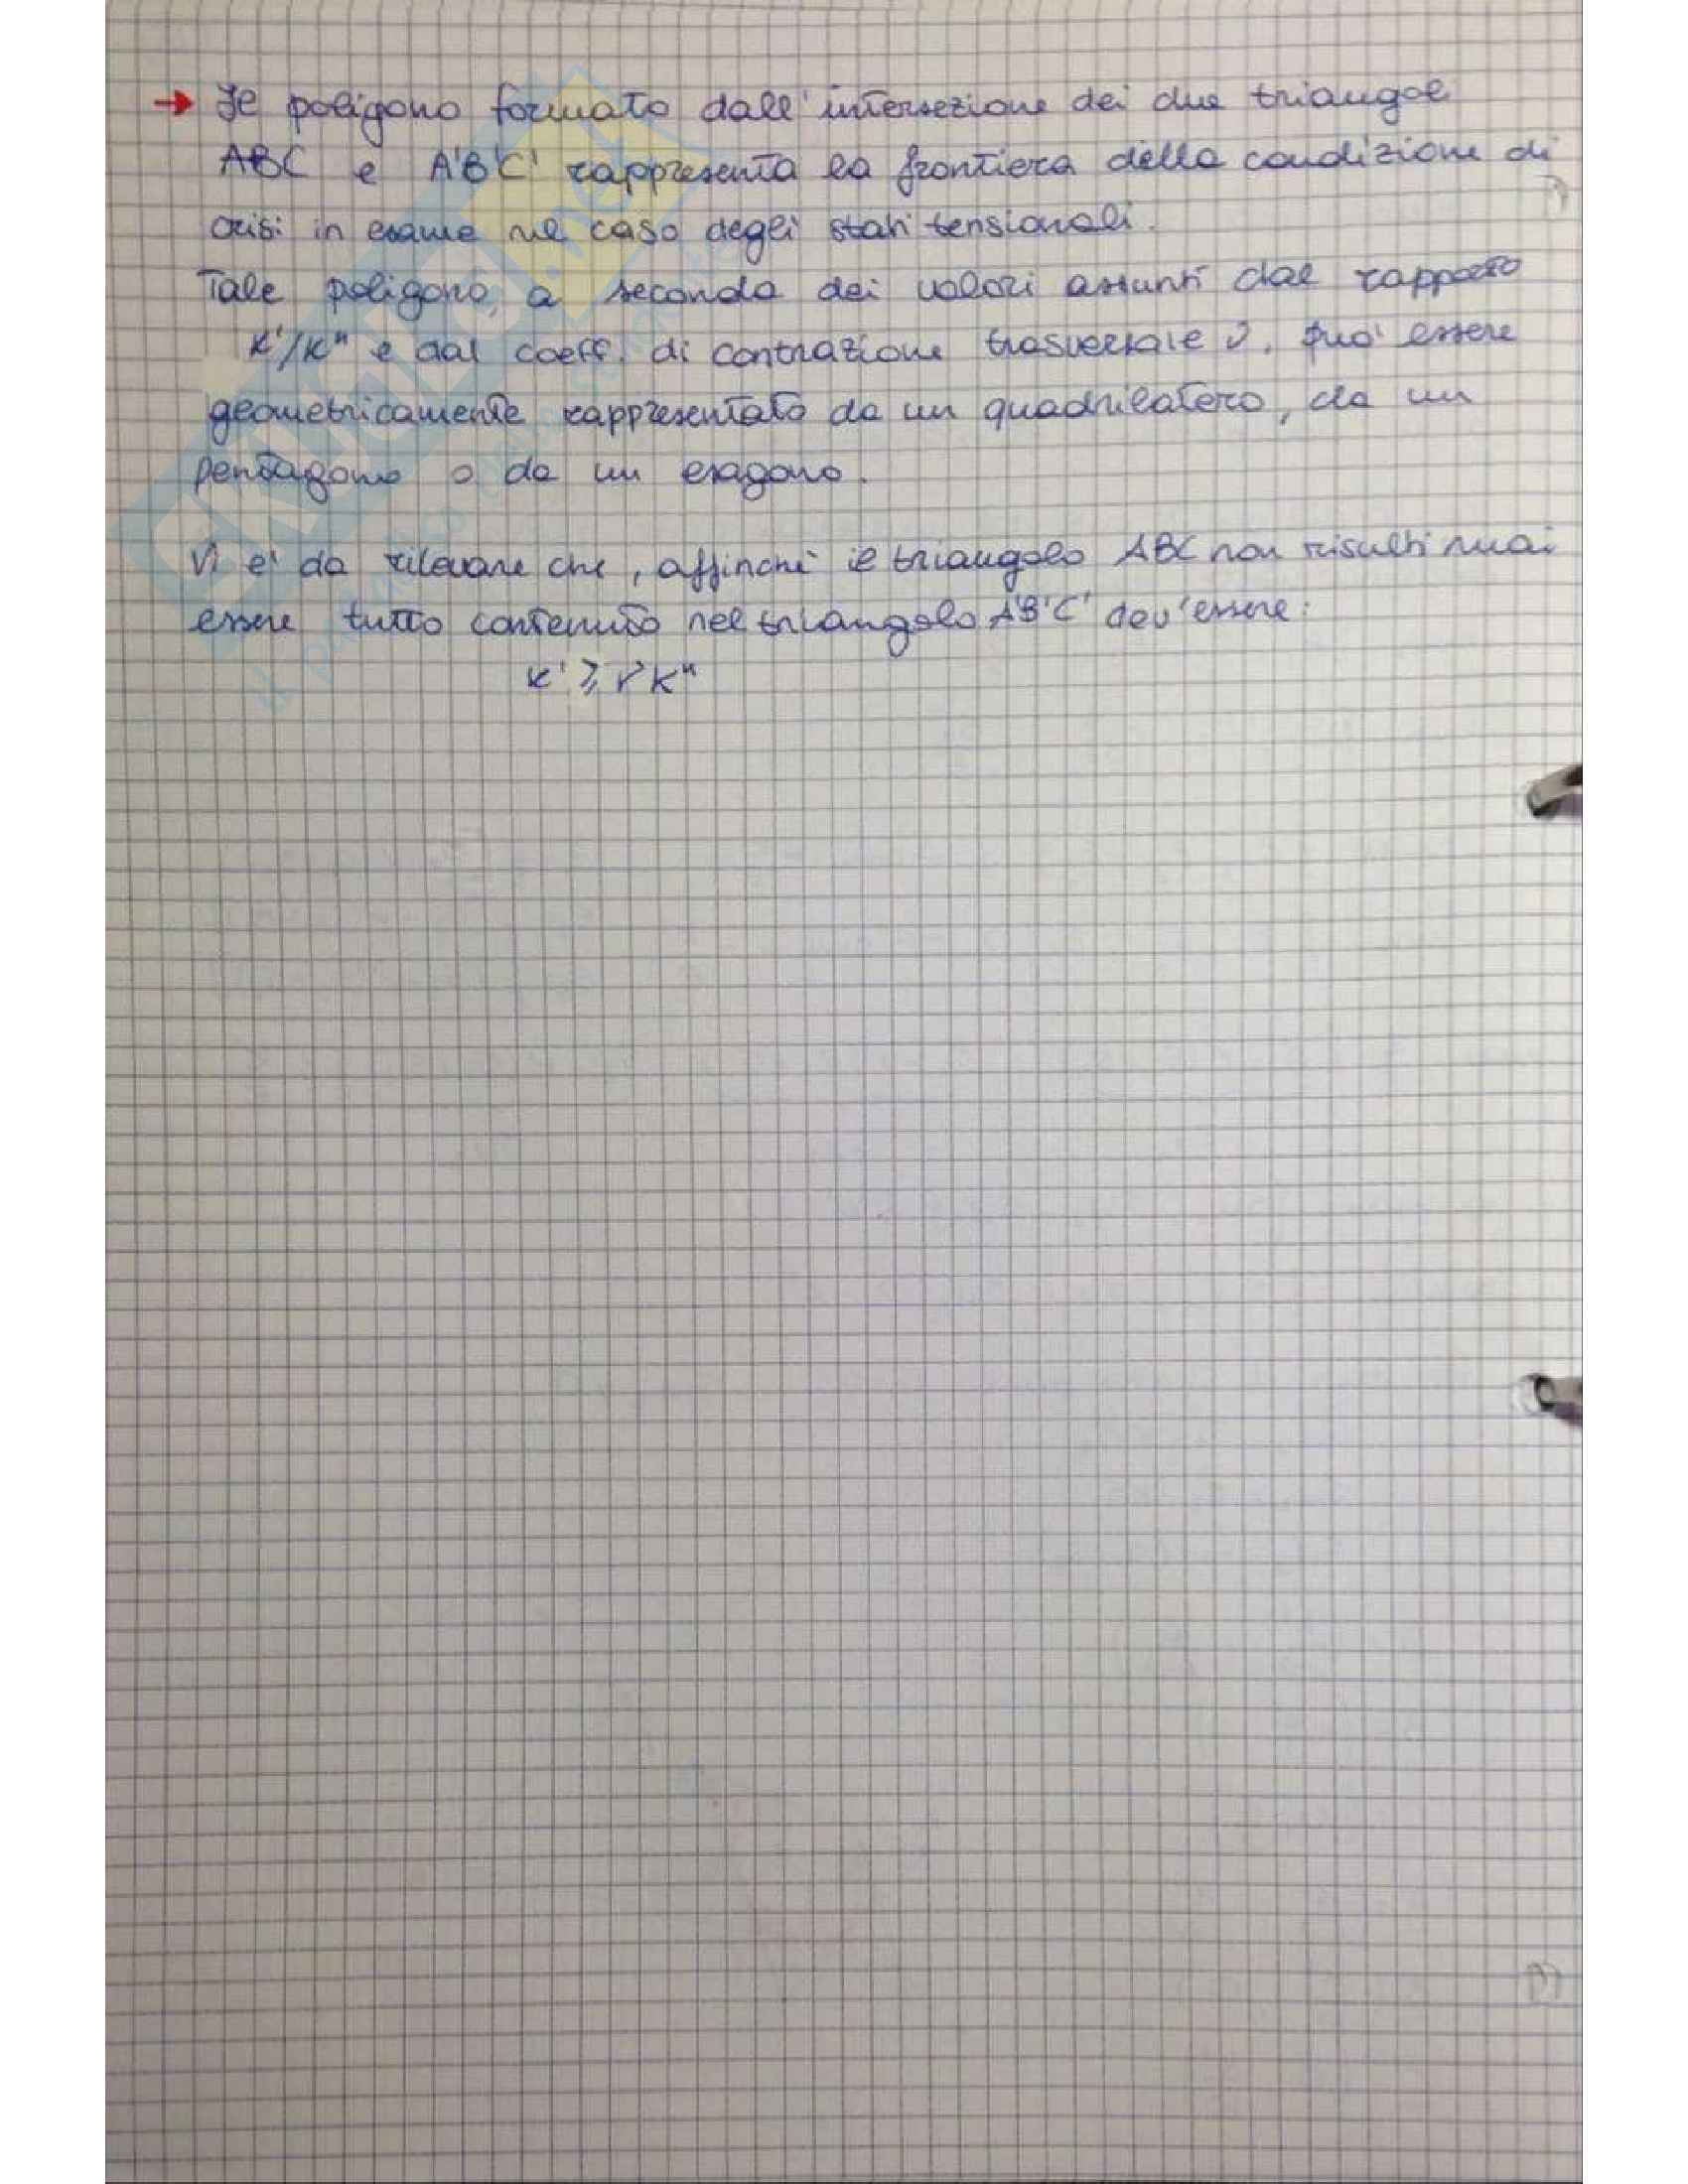 → Il poligono formato dall'intersezione dei due triangoli
ABC e A'B'C' rappresenta la frontiera della condizione di
crisi in esame nel caso degli stati tensionali.
Tale poligono, a seconda dei valori assunti dal rapporto
K'/K" e dal coeff. di contrazione trasversale ν, può essere
geometricamente rappresentato da un quadrilatero, da un
pentagono o da un esagono.
Vi e' da rilevare che, affinchè il triangolo ABC non risulti mai
essere tutto contenuto nel triangolo A'B'C' dev'essere:
K' ⩾ νK"